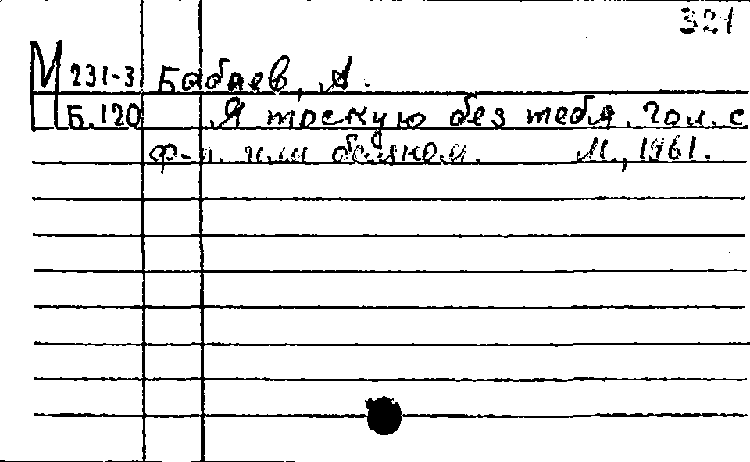 321
М 231-3 Бабаев, А.
Б.120 Я тоскую без тебя. Гол. с
ф-п. или баяном. М., 1961.